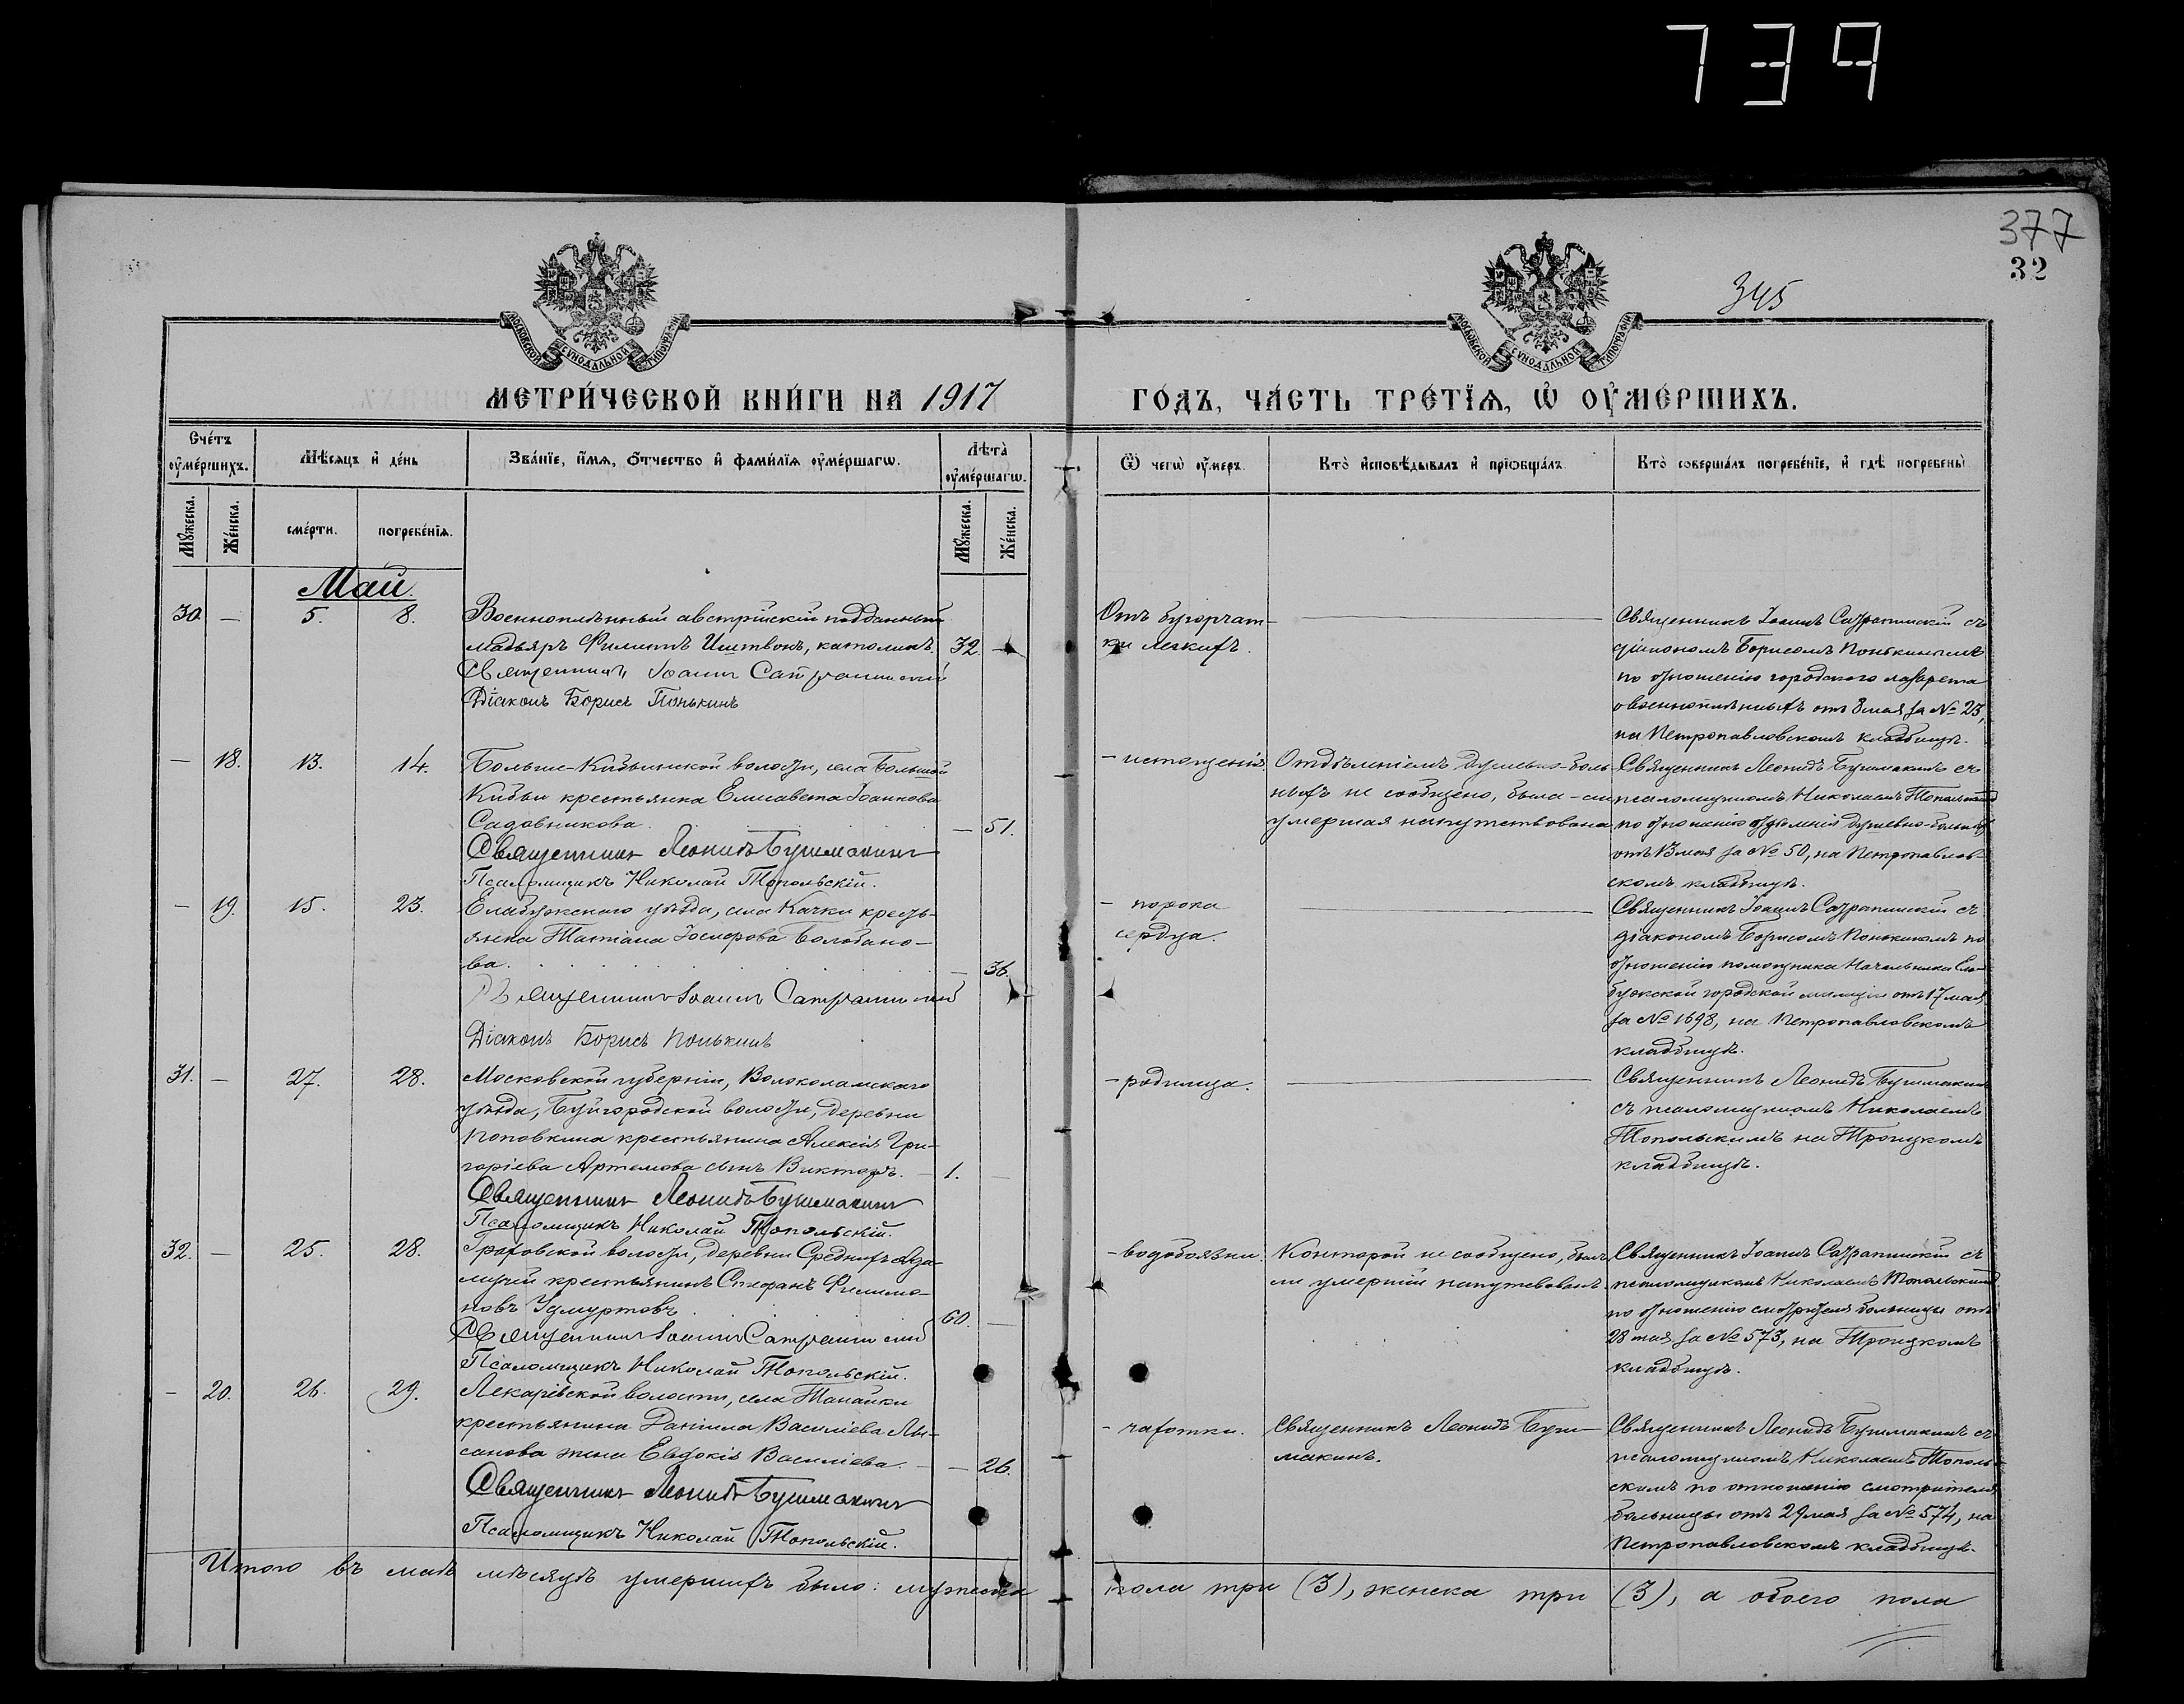 739
377
32
345
МОСКОВСКОЙ СѴНОДАЛЬНОЙ ТИПОГРАФІИ
МОСКОВСКОЙ СѴНОДАЛЬНОЙ ТИПОГРАФІИ
МЕТРИ́ЧЕСКОЙ КНИ́ГИ НА 1917 ГОДЪ, ЧА́СТЬ ТРЕ́ТІѦ, Ѽ ОУ҆МЕ́РШИХЪ.
Сче́тъ оу҆ме́ршихъ.
Мѣ́сяцъ и҆ де́нь
Зва́нїе, и҆́мѧ, о҆́тчество и҆ фами́лїѧ оу҆ме́ршагѡ.
Лѣта̀ оу҆ме́ршагѡ.
Ѿ чегѡ̀ оу҆́меръ.
Кто̀ и҆сповѣ́дывалъ и҆ прїѡбща́лъ.
Кто̀ соверша́лъ погребе́нїе, и҆ гдѣ̀ погребены̀
Мꙋ́жеска.
Же́нска.
сме́рти.
погребе́нїѧ.
Мꙋ́жеска.
Же́нска.
Май.
30. — 5. 8.
Военноплѣнный австрійскій подданный
мадьяръ Филиппъ Иштвонъ, католикъ. 32. —
Священникъ Іоаннъ Сатрапинскій
Діаконъ Борисъ Понькинъ
Отъ бугорчат-
ки легкихъ.
Священникъ Іоаннъ Сатрапинскій съ
діакономъ Борисомъ Понькинымъ
по отношенію городского лазарета
о военноплѣнныхъ отъ 8 мая за № 23,
на Петропавловскомъ кладбищѣ.
— 18. 13. 14.
Больше-Кибьинской волости, села Большой
Кибьи крестьянка Елисавета Іоаннова
Садовникова. — 51.
Священникъ Леонидъ Бушмакинъ
Псаломщикъ Николай Топольскій.
— истощенія.
Отдѣленіемъ душевно-боль-
ныхъ не сообщено, была-ли
умершая напутствована
Священникъ Леонидъ Бушмакинъ съ
псаломщикомъ Николаемъ Топольскимъ
по отношенію отдѣленія душевно-больныхъ
отъ 13 мая за № 50, на Петропавлов-
скомъ кладбищѣ.
— 19. 15. 23.
Елабужскаго уѣзда, села Качки кресть-
янка Татіана Іосифова Болобано-
ва. — 36.
Священникъ Іоаннъ Сатрапинскій
Діаконъ Борисъ Понькинъ
— порока
сердца.
Священникъ Іоаннъ Сатрапинскій съ
діакономъ Борисомъ Понькинымъ по
отношенію помощника Начальника Ела-
бужской городской милиціи отъ 17 мая
за № 1698, на Петропавловскомъ
кладбищѣ.
31. — 27. 28.
Московской губерніи, Волоколамскаго
уѣзда, Буйгородской волости, деревни
Поповкина крестьянина Алексія Гри-
горіева Артемова сынъ Викторъ. — 1. —
Священникъ Леонидъ Бушмакинъ
Псаломщикъ Николай Топольскій.
— родимца.
Священникъ Леонидъ Бушмакинъ
съ псаломщикомъ Николаемъ
Топольскимъ на Троицкомъ
кладбищѣ.
32. — 25. 28.
Граховской волости, деревни Среднихъ Ада-
мучей крестьянинъ Стефанъ Филимо-
новъ Удмуртовъ. 60. —
Священникъ Іоаннъ Сатрапинскій
Псаломщикъ Николай Топольскій.
— водобоязни.
Конторой не сообщено, былъ
ли умершій напутствованъ.
Священникъ Іоаннъ Сатрапинскій съ
псаломщикомъ Николаемъ Топольскимъ
по отношенію смотрителя больницы отъ
28 мая за № 573, на Троицкомъ
кладбищѣ.
— 20. 26. 29.
Лекаревской волости, села Танайки
крестьянина Даніила Василіева Лы-
санова жена Евдокія Василіева. — 26.
Священникъ Леонидъ Бушмакинъ
Псаломщикъ Николай Топольскій.
— чахотки.
Священникъ Леонидъ Буш-
макинъ.
Священникъ Леонидъ Бушмакинъ съ
псаломщикомъ Николаемъ Тополь-
скимъ по отношенію смотрителя
больницы отъ 29 мая за № 574, на
Петропавловскомъ кладбищѣ.
Итого въ маѣ мѣсяцѣ умершихъ было: мужеска пола три (3), женска три (3), а обоего пола